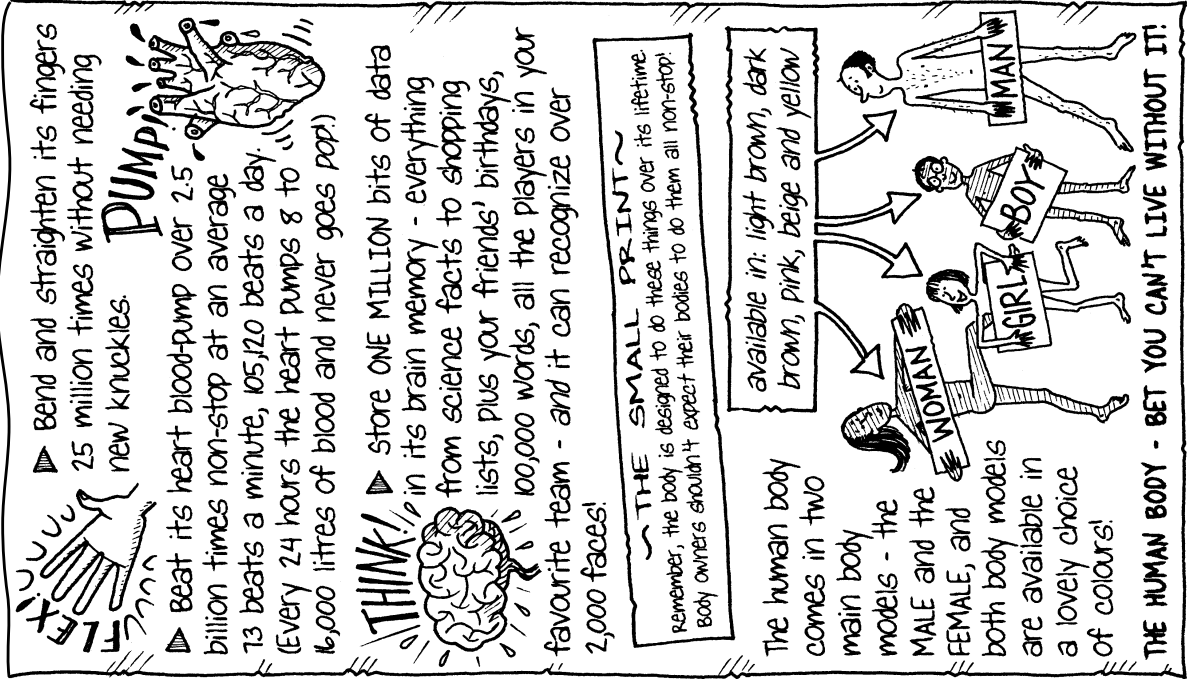 FLEX!
▶ Bend and straighten its fingers
25 million times without needing
new knuckles.
PUMP!
▶ Beat its heart blood-pump over 2.5
billion times non-stop at an average
73 beats a minute, 105,120 beats a day.
(Every 24 hours the heart pumps 8 to
16,000 litres of blood and never goes pop!)
THINK!
▶ Store ONE MILLION bits of data
in its brain memory - everything
from science facts to shopping
lists, plus your friends' birthdays,
100,000 words, all the players in your
favourite team - and it can recognize over
2,000 faces!
~THE SMALL PRINT~
Remember, the body is designed to do these things over its lifetime.
Body owners shouldn't expect their bodies to do them all non-stop!
The human body
comes in two
main body
models - the
MALE and the
FEMALE, and
both body models
are available in
a lovely choice
of colours!
available in: light brown, dark
brown, pink, beige and yellow
WOMAN
GIRL
BOY
MAN
THE HUMAN BODY - BET YOU CAN'T LIVE WITHOUT IT!